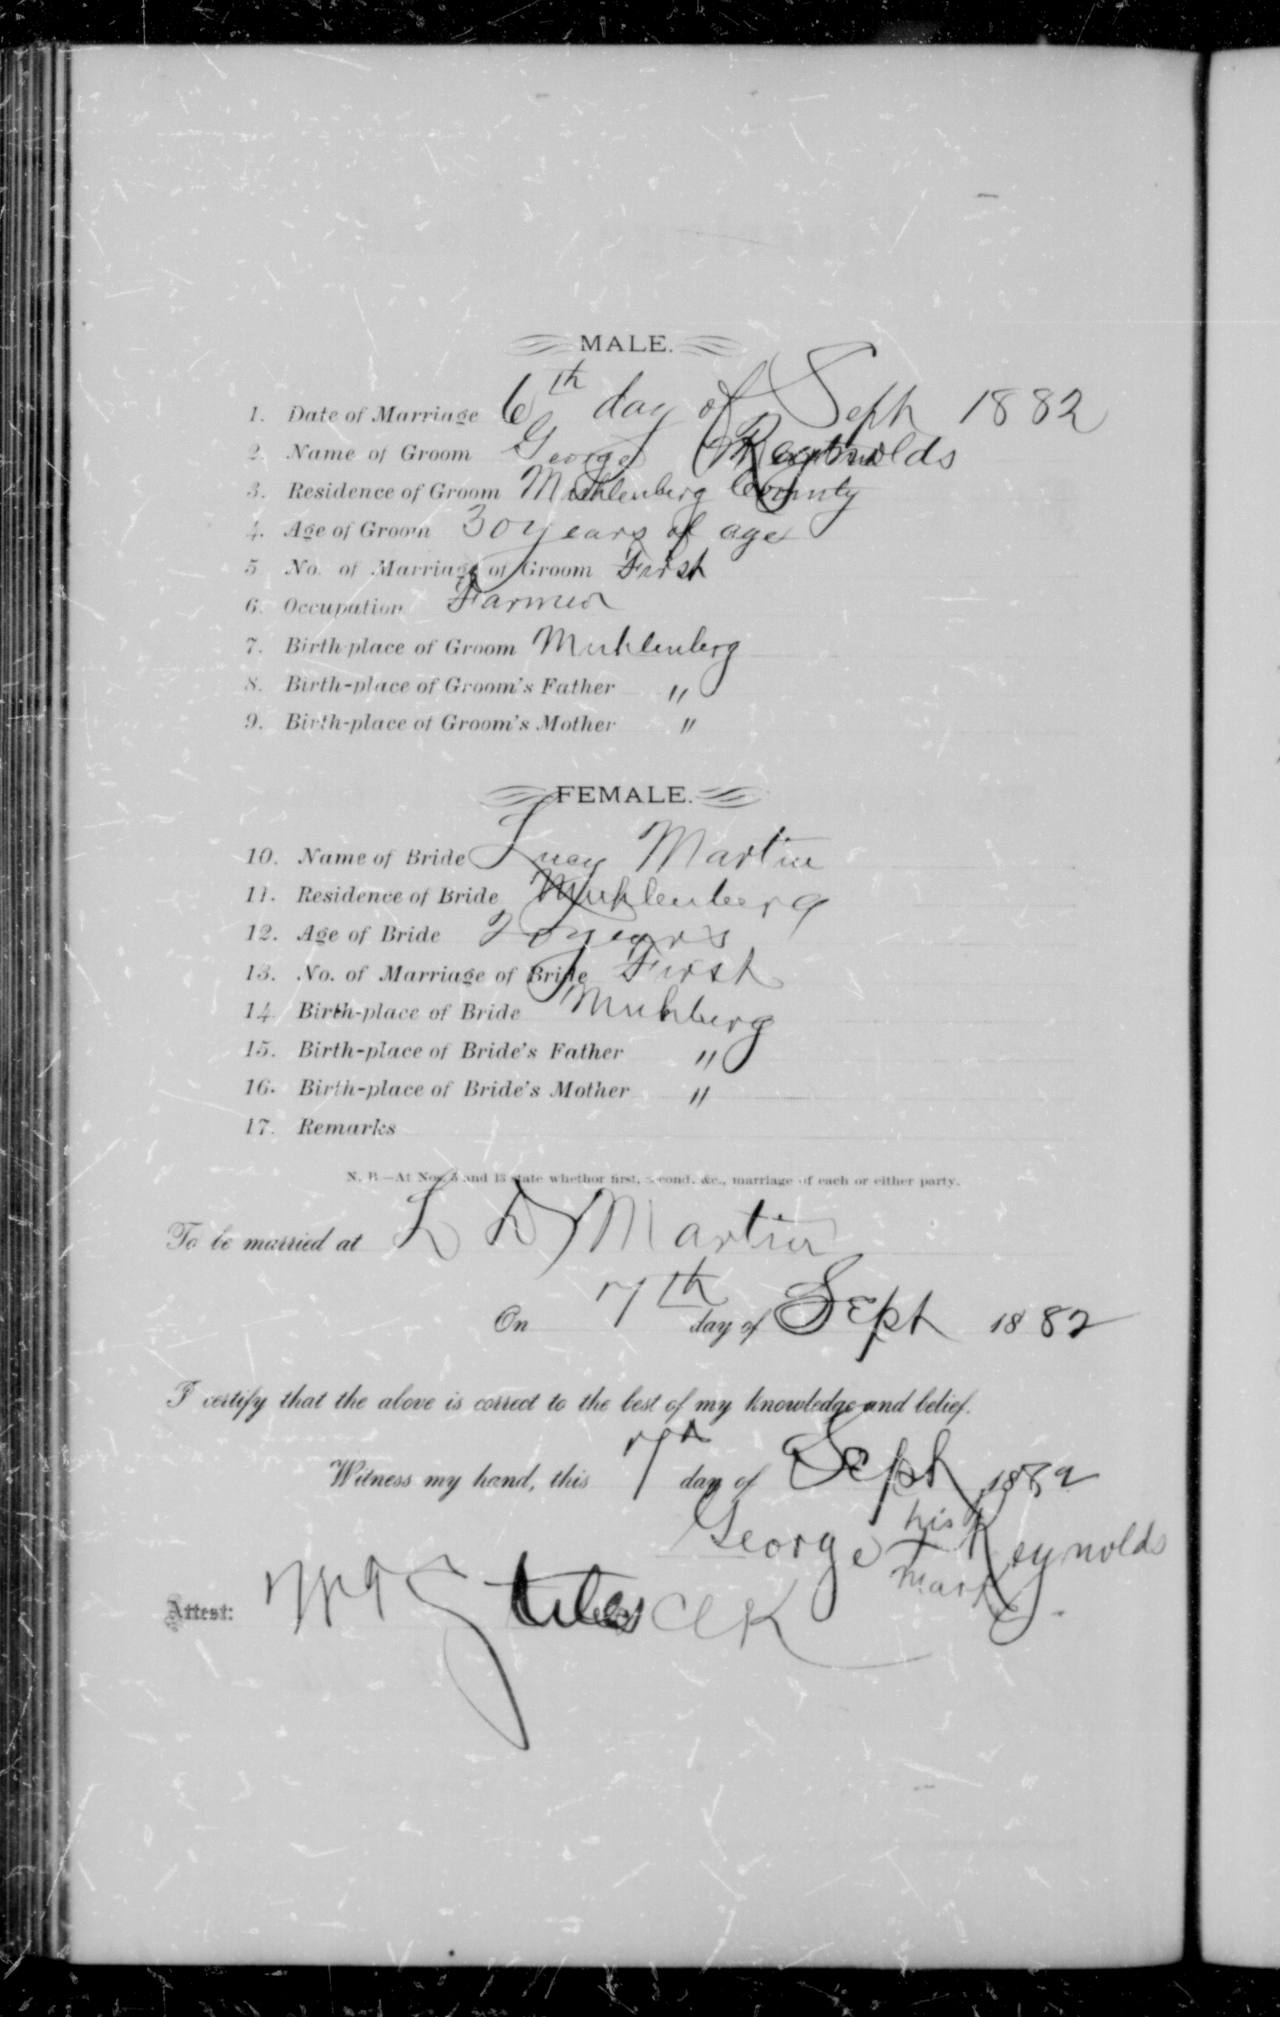 MALE.
1. Date of Marriage 6th day of Sept 1882
2. Name of Groom George Reynolds
3. Residence of Groom Muhlenberg County
4. Age of Groom 30 years of age
5. No. of Marriage of Groom First
6. Occupation Farmer
7. Birth-place of Groom Muhlenberg
8. Birth-place of Groom's Father "
9. Birth-place of Groom's Mother "
FEMALE.
10. Name of Bride Lucy Martin
11. Residence of Bride Muhlenberg
12. Age of Bride 20 years
13. No. of Marriage of Bride First
14. Birth-place of Bride Muhberg
15. Birth-place of Bride's Father "
16. Birth-place of Bride's Mother "
17. Remarks
N. B.—At Nos. 5 and 13 state whether first, second, &c., marriage of each or either party.
To be married at L D Martin
On 7th day of Sept 1882
I certify that the above is correct to the best of my knowledge and belief.
Witness my hand, this 7th day of Sept 1882
his
George + Reynolds
mark
Attest: Clk